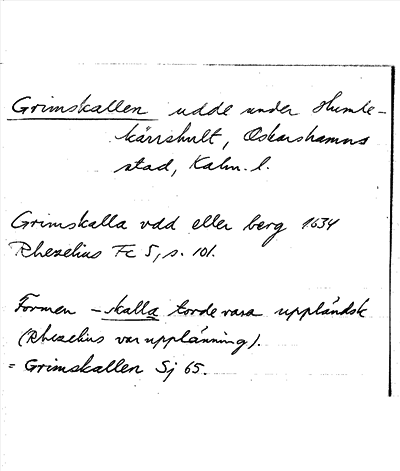 Grimskallen udde under Humle-
kärrshult, Oskarshamns
stad, Kalm. l.
Grimskalla udd eller berg 1634
Rhezelius Fc 5, s. 101.
Formen -skalla torde vara uppländsk
(Rhezelius var upplänning).
= Grimskallen Sj 65.